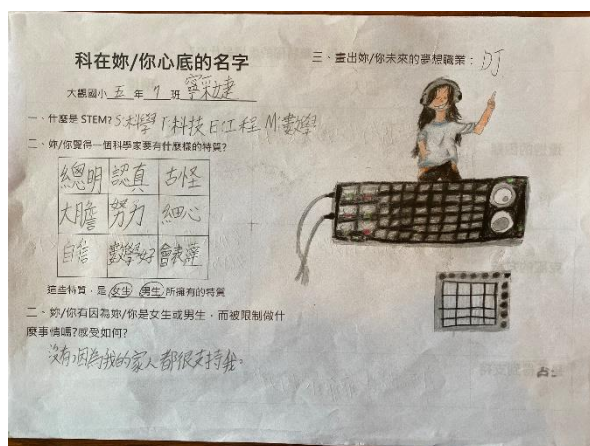 科在妳/你心底的名字
大觀國小 五 年 7 班 寧采婕
一、什麼是 STEM? S:科學 T:科技 E:工程 M:數學
二、妳/你覺得一個科學家要有什麼樣的特質?
總明 認真 古怪
大膽 努力 細心
自信 數學好 會表達
這些特質，是 女生 男生 所擁有的特質
二、妳/你有因為妳/你是女生或男生，而被限制做什
麼事情嗎?感受如何?
沒有，因為我的家人都很支持我。
三、畫出妳/你未來的夢想職業： DJ